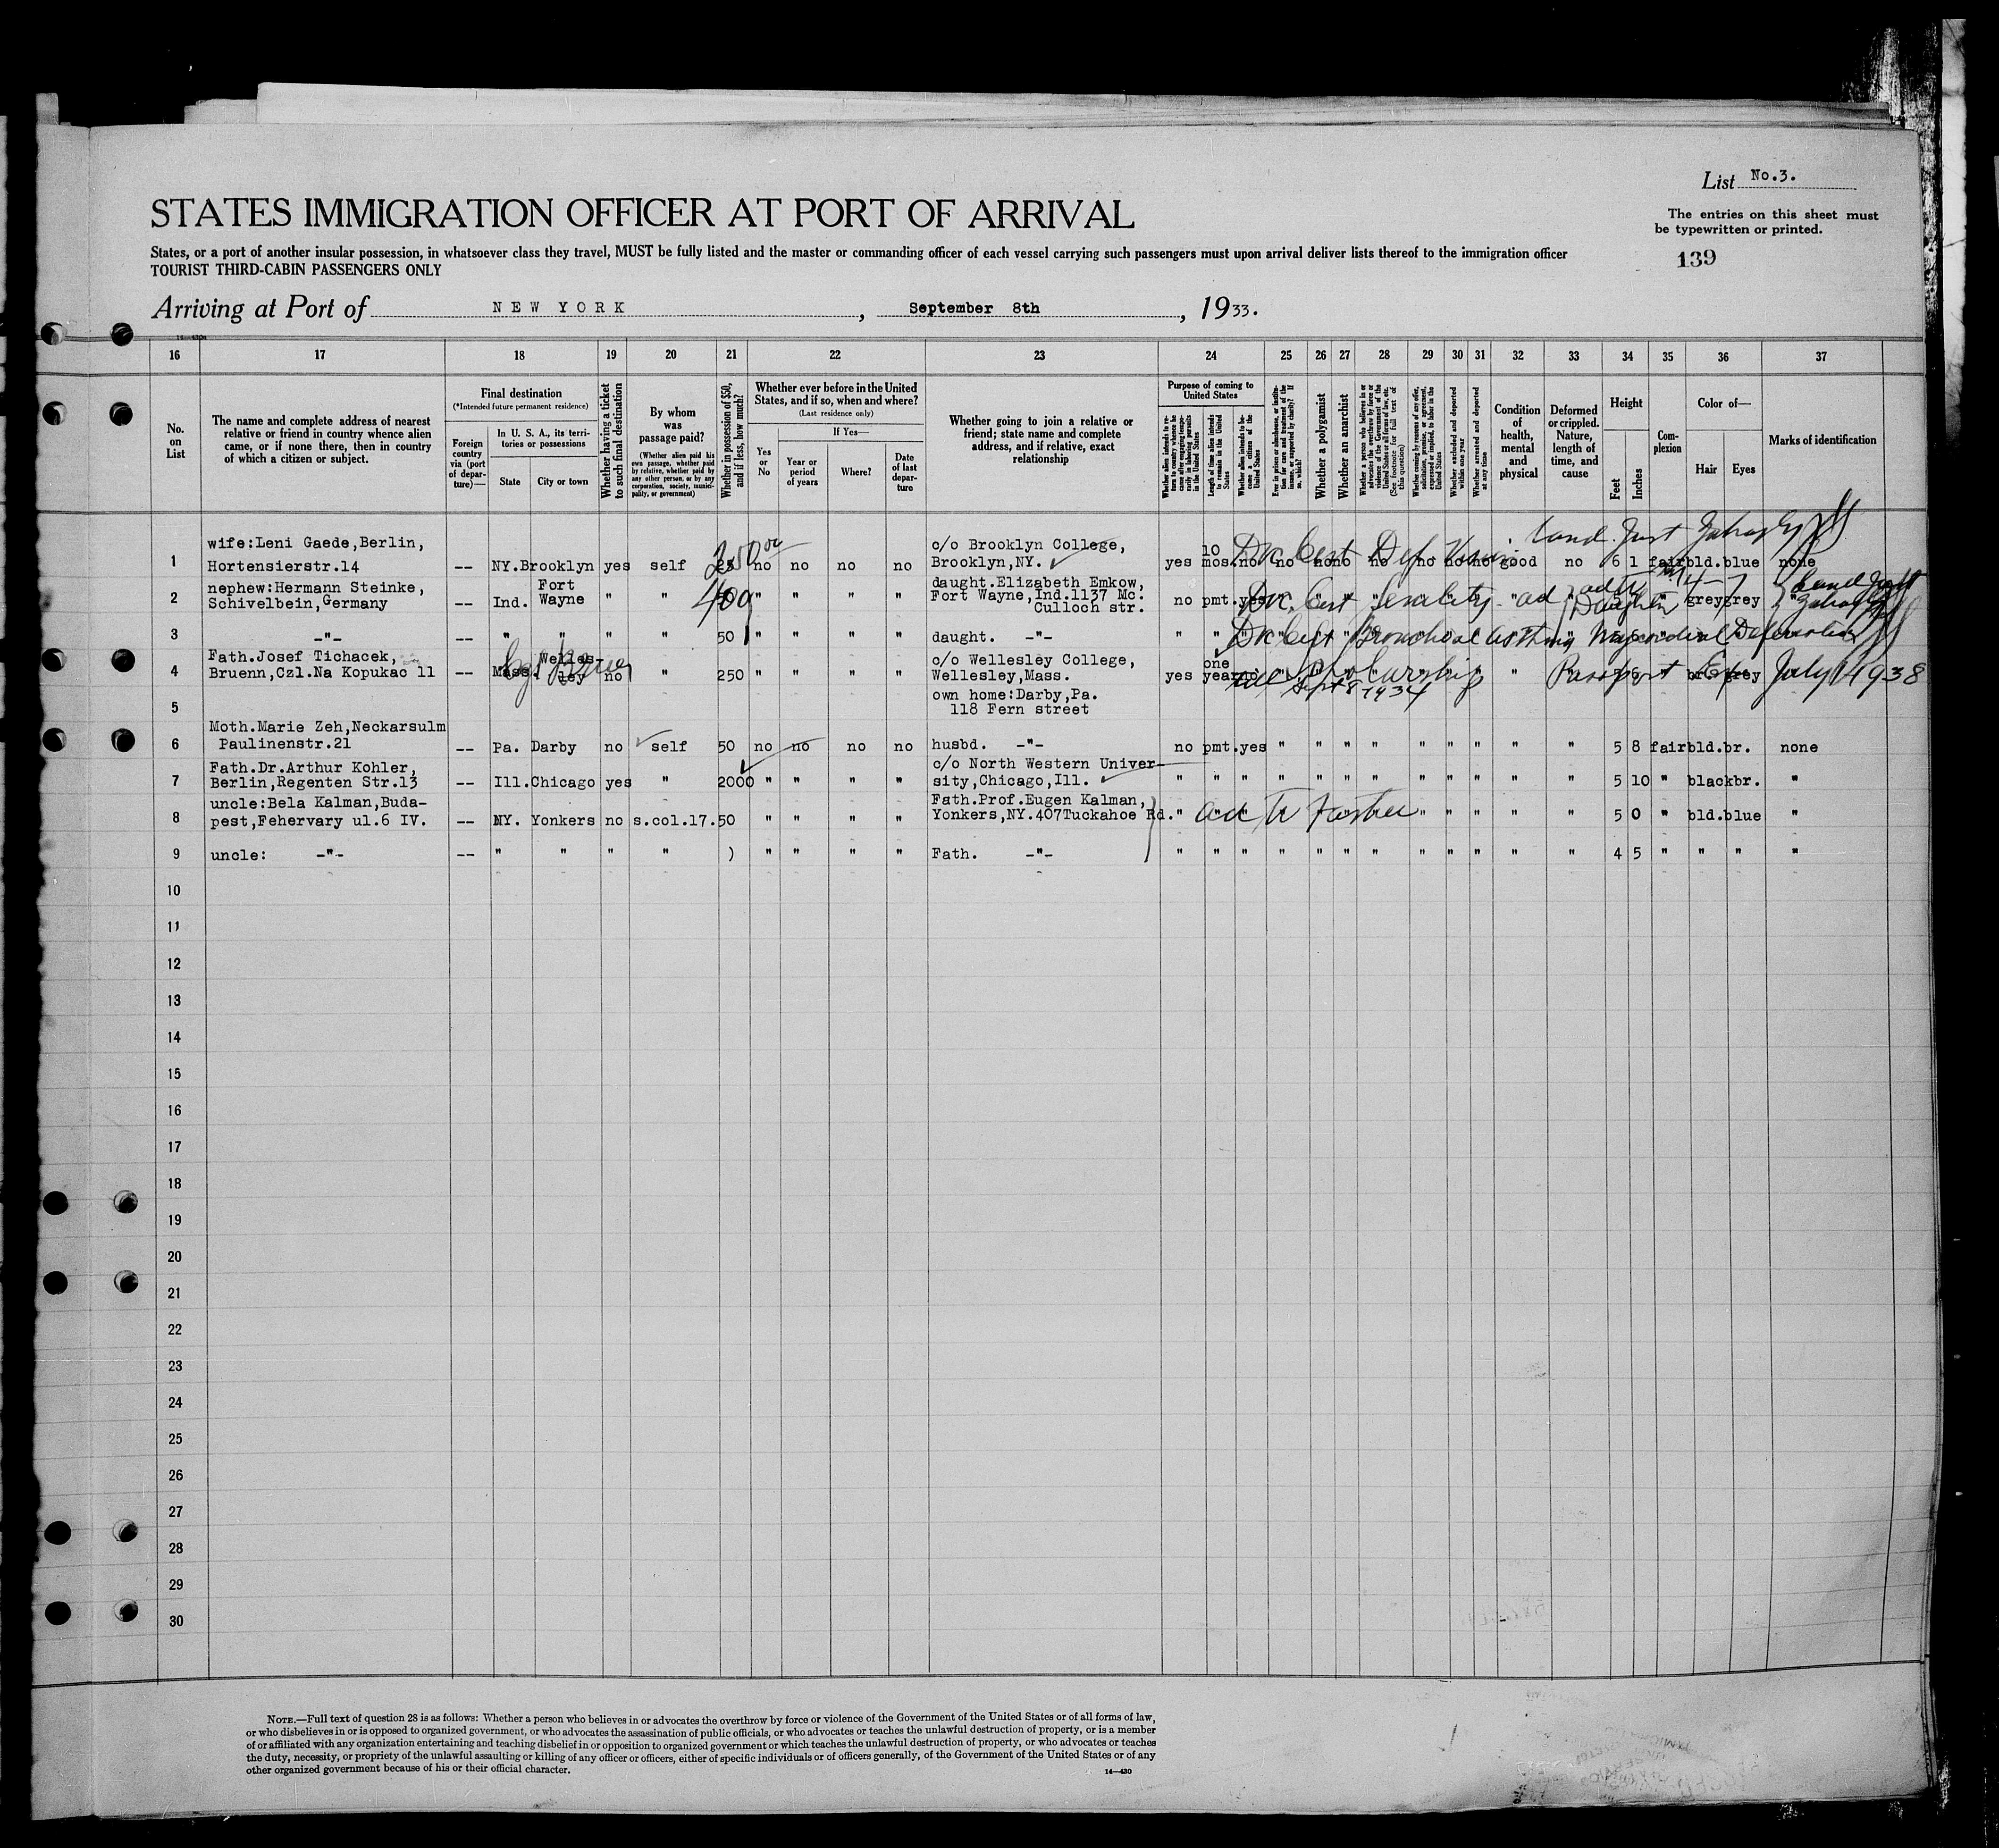 List No.3.
The entries on this sheet must
be typewritten or printed.
139
STATES IMMIGRATION OFFICER AT PORT OF ARRIVAL
States, or a port of another insular possession, in whatsoever class they travel, MUST be fully listed and the master or commanding officer of each vessel carrying such passengers must upon arrival deliver lists thereof to the immigration officer
TOURIST THIRD-CABIN PASSENGERS ONLY
Arriving at Port of NEW YORK, September 8th, 1933.
16 17 18 19 20 21 22 23 24 25 26 27 28 29 30 31 32 33 34 35 36 37
No.
on
List
The name and complete address of nearest
relative or friend in country whence alien
came, or if none there, then in country
of which a citizen or subject.
Final destination
(*Intended future permanent residence)
Foreign
country
via (port
of depar-
ture)—
In U. S. A., its terri-
tories or possessions
State
City or town
Whether having a ticket
to such final destination
By whom
was
passage paid?
(Whether alien paid his
own passage, whether paid
by relative, whether paid by
any other person, or by any
corporation, society, munici-
pality, or government)
Whether in possession of $50,
and if less, how much?
Whether ever before in the United
States, and if so, when and where?
(Last residence only)
Yes
or
No
If Yes—
Year or
period
of years
Where?
Date
of last
depar-
ture
Whether going to join a relative or
friend; state name and complete
address, and if relative, exact
relationship
Purpose of coming to
United States
Length of time alien intends
to remain in the United
States
Whether alien intends to be-
come a citizen of the
United States
Whether a polygamist
Whether an anarchist
Whether excluded and deported
within one year
Whether arrested and deported
at any time
Condition
of
health,
mental
and
physical
Deformed
or crippled.
Nature,
length of
time, and
cause
Height
Feet
Inches
Com-
plexion
Color of—
Hair
Eyes
Marks of identification
1 wife:Leni Gaede,Berlin,
Hortensierstr.14 -- NY.Brooklyn yes self no no no no
c/o Brooklyn College,
Brooklyn,NY. yes 10 mos. no no no no no no no no good no 6 1 fair bld. blue none
Dr. Cert Def Vision
2 nephew:Hermann Steinke,
Schivelbein,Germany -- Ind. Fort
Wayne " " 400 " " " "
daught.Elizabeth Emkow,
Fort Wayne,Ind.1137 Mc.
Culloch str. no pmt. yes grey grey
Dr. Cert Senility
3 -"- -- " " " " 50 " " " " daught. -"- " "
Dr Cert Bronchial Asthma Myocardial
4 Fath.Josef Tichacek,
Bruenn,Czl.Na Kopukac 11 -- Mass. Welles-
ley no " 250 " " " "
c/o Wellesley College,
Wellesley,Mass. yes one
year no grey
Sept 8 1934
Passport Exp July 1 1938
5 own home:Darby,Pa.
118 Fern street
6 Moth.Marie Zeh,Neckarsulm
Paulinenstr.21 -- Pa. Darby no self 50 no no no no husbd. -"- no pmt.yes " " " " " " " " " 5 8 fair bld.br. none
7 Fath.Dr.Arthur Kohler,
Berlin,Regenten Str.13 -- Ill.Chicago yes " 2000 " " " "
c/o North Western Univer-
sity,Chicago,Ill. " " " " " " " " " " " " 5 10 " black br. "
8 uncle:Bela Kalman,Buda-
pest,Fehervary ul.6 IV. -- NY. Yonkers no s.col.17. 50 " " " "
Fath.Prof.Eugen Kalman,
Yonkers,NY.407Tuckahoe Rd. " ad to Father " " " " " 5 0 " bld.blue "
9 uncle: -"- -- " " " " ) " " " " Fath. -"- " " " " " " " " " " " " 4 5 " " " "
10
11
12
13
14
15
16
17
18
19
20
21
22
23
24
25
26
27
28
29
30
NOTE.—Full text of question 28 is as follows: Whether a person who believes in or advocates the overthrow by force or violence of the Government of the United States or of all forms of law,
or who disbelieves in or is opposed to organized government, or who advocates the assassination of public officials, or who advocates or teaches the unlawful destruction of property, or is a member
of or affiliated with any organization entertaining and teaching disbelief in or opposition to organized government or which teaches the unlawful destruction of property, or who advocates or teaches
the duty, necessity, or propriety of the unlawful assaulting or killing of any officer or officers, either of specific individuals or of officers generally, of the Government of the United States or of any
other organized government because of his or their official character.
14—430